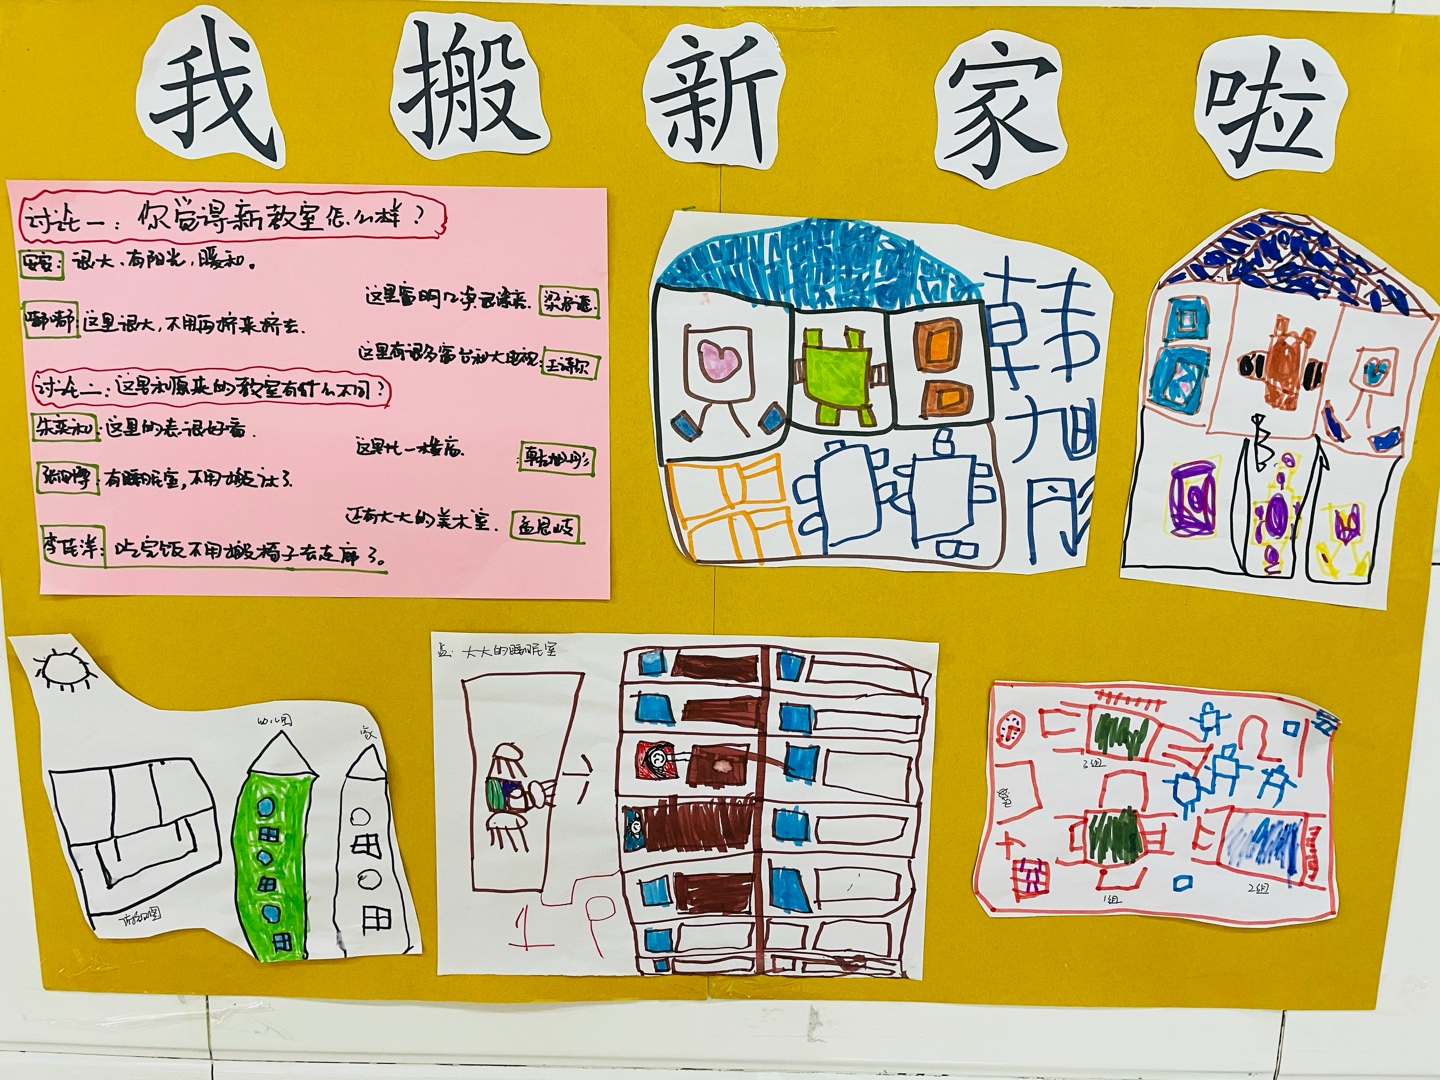 我搬新家啦
讨论一：你觉得新教室怎么样？
安安：很大、有阳光，暖和。
嘟嘟：这里很大，不用再挤来挤去.
这里有很多窗台和大电视
讨论二：这里和原来的教室有什么不同？
这里的表很好看.
这里比一楼高.
有睡眠室，不用搬床了.
韩旭彤
还有大大的美术室.
孟思岐
吃完饭不用搬椅子去走廊了。
韩
旭
幼儿园
家
孟：大大的睡眠室
3组
1组
2组